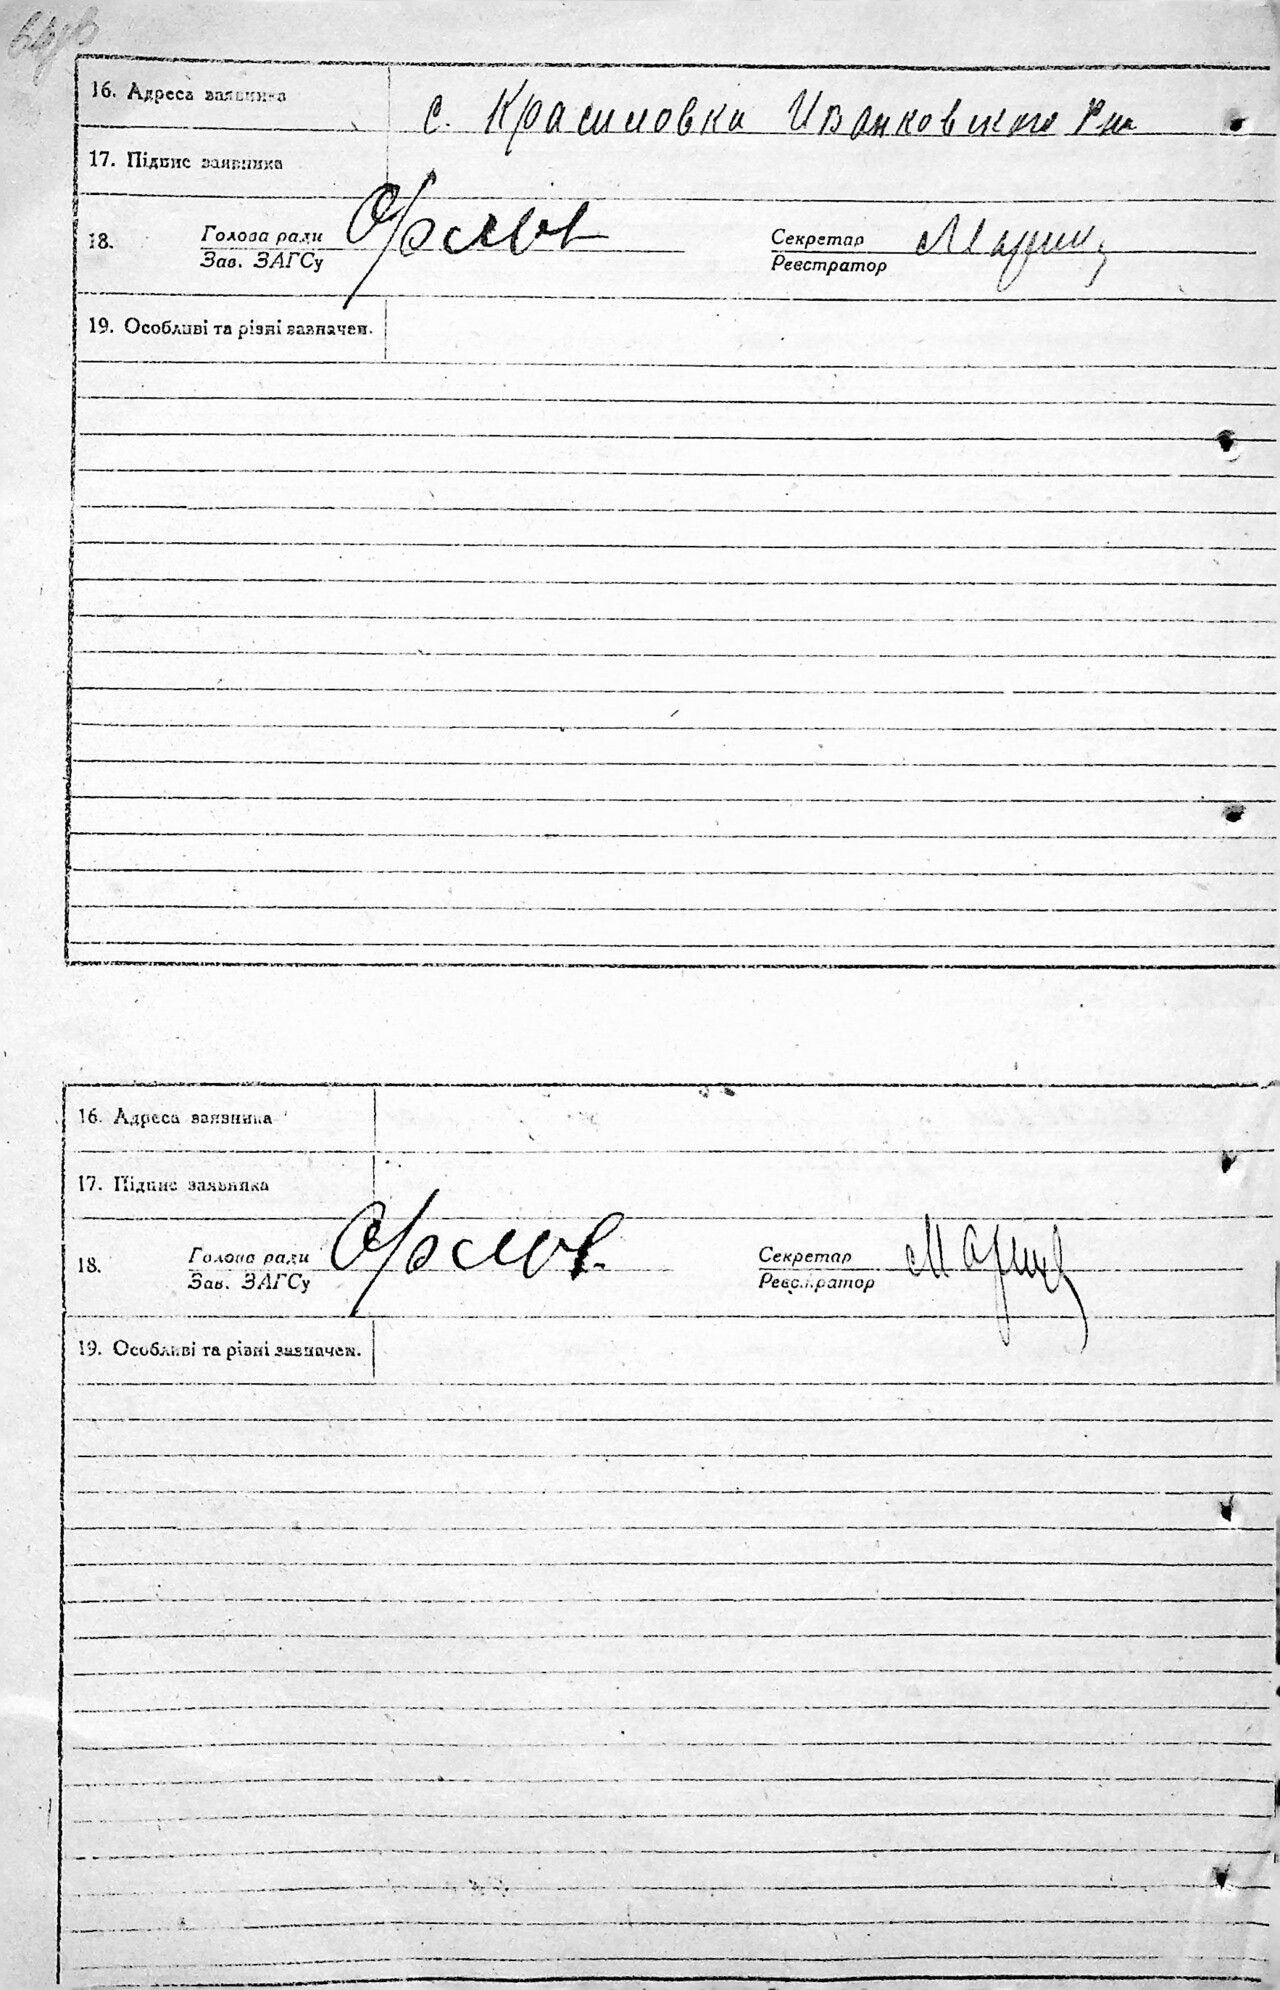 16. Адреса заявника с. Красиловка Иванковского Р-на
17. Підпис заявника
18. Голова ради Секретар
Зав. ЗАГСу Реєстратор
19. Особливі та різні зазначен.
16. Адреса заявника
17. Підпис заявника
18. Голова ради Секретар
Зав. ЗАГСу Реєстратор
19. Особливі та різні зазначен.